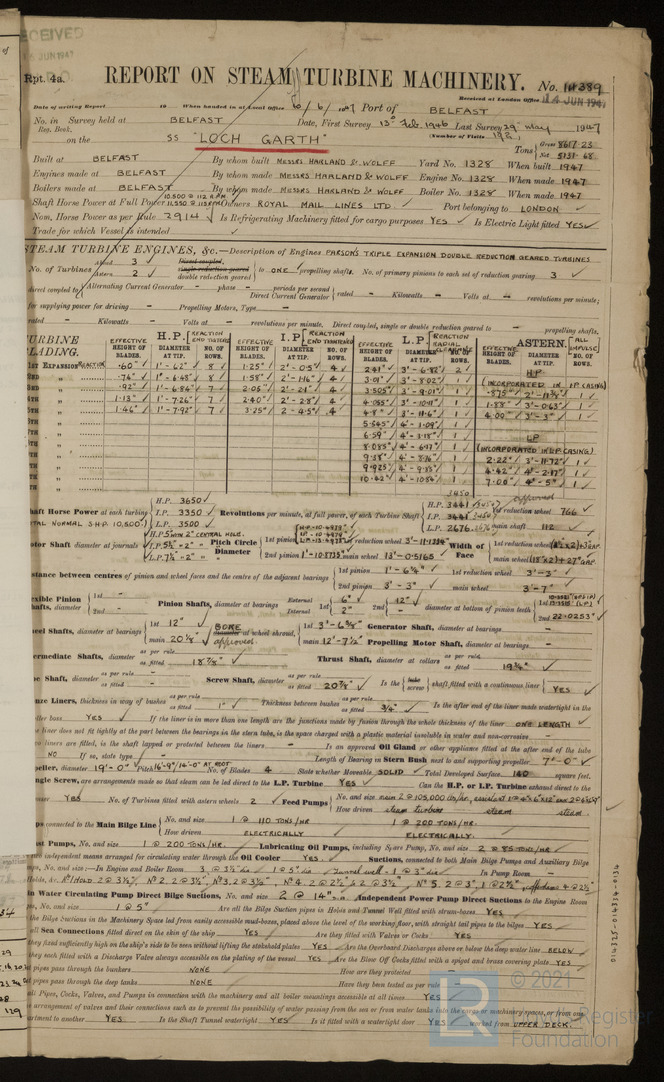 RECEIVED
JUN 1947
Rpt. 4a.
REPORT ON STEAM TURBINE MACHINERY. No. 14389
Date of writing Report 19 When handed in at Local Office 6/6/1947 Port of BELFAST Received at London Office 14 JUN 1947
No. in Survey held at BELFAST Date, First Survey 13th Feb. 1946 Last Survey 29th May 1947
Reg. Book. (Number of Visits 192)
on the SS "LOCH GARTH" Tons Gross 8617.23 Net 5131.68
Built at BELFAST By whom built MESSRS HARLAND & WOLFF Yard No. 1328 When built 1947
Engines made at BELFAST By whom made MESSRS HARLAND & WOLFF Engine No. 1328 When made 1947
Boilers made at BELFAST By whom made MESSRS HARLAND & WOLFF Boiler No. 1328 When made 1947
Shaft Horse Power at Full Power 10,500 @ 112 R.P.M. 11,550 @ 115 RPM Owners ROYAL MAIL LINES LTD. Port belonging to LONDON
Nom. Horse Power as per Rule 2914 Is Refrigerating Machinery fitted for cargo purposes YES Is Electric Light fitted YES
Trade for which Vessel is intended
STEAM TURBINE ENGINES, &c.—Description of Engines PARSON'S TRIPLE EXPANSION DOUBLE REDUCTION GEARED TURBINES
No. of Turbines Ahead 3 Astern 2 Direct coupled, single reduction geared double reduction geared to ONE propelling shafts. No. of primary pinions to each set of reduction gearing 3
direct coupled to Alternating Current Generator – phase – periods per second Direct Current Generator rated – Kilowatts – Volts at – revolutions per minute;
for supplying power for driving – Propelling Motors, Type –
rated – Kilowatts – Volts at – revolutions per minute. Direct coupled, single or double reduction geared to – propelling shafts.
TURBINE BLADING. H.P. REACTION END TIGHTENED I.P. REACTION END TIGHTENED L.P. REACTION RADIAL CLEARANCE ASTERN. ALL IMPULSE
EFFECTIVE HEIGHT OF BLADES. DIAMETER AT TIP. NO. OF ROWS.
1ST EXPANSION REACTION .60" 1'- 62" 8 1.25" 2'-0.5" 4 2.41" 3'-6.82" 2 H.P.
.76" 1'-6.48" 8 1.58" 2'-1.16" 4 3.01" 3'-8.02" 1 (INCORPORATED IN I.P CASING)
.92" 1'-6.84" 7 2.05" 2'-2.1" 4 3.505" 3'-9.01" 1 .875" 2'-11¾" 1
1.13" 1'-7.26" 7 2.40" 2'-2.8" 4 4.055" 3'-10.11" 1 1.88" 3'-0.63" 1
1.46" 1'-7.92" 7 3.25" 2'-4.5" 4 4.8" 3'-11.6" 1 4.00" 3'-3" 1
5.545" 4'-1.09" 1
6.59" 4'-3.18" 1 LP
8.085" 4'-6.17" 1 (INCORPORATED IN L.P CASING)
9.38" 4'-8.76" 1 2.22" 3'-11.72" 1
9.925" 4'-9.85" 1 4.42" 4'-2.17" 1
10.42" 4'-10.84" 1 7.00" 4'-5" 1
Shaft Horse Power at each turbine H.P. 3650 I.P. 3350 L.P. 3500 Revolutions per minute, at full power, of each Turbine Shaft H.P. 3441 I.P. 3441 L.P. 2676 1st reduction wheel 766 main shaft 112
TOTAL NORMAL S.H.P. 10,500
Rotor Shaft diameter at journals H.P. 5" WITH 2" CENTRAL HOLE. I.P. 5½" – 2" L.P. 7½" – 2" Pitch Circle Diameter 1st pinion 1st reduction wheel Width of Face 1st reduction wheel
2nd pinion 1'-10.8733" main wheel 13'-0.5165 main wheel (18"x2)+27" GAP
Distance between centres of pinion and wheel faces and the centre of the adjacent bearings 1st pinion 1'-6¼" 1st reduction wheel 3'-3"
2nd pinion 3'-3" main wheel 3'-7"
Flexible Pinion Shafts, diameter 1st – 2nd – Pinion Shafts, diameter at bearings External 1st 6" 2nd 12" Internal 2" – diameter at bottom of pinion teeth 2nd 22.0253"
Wheel Shafts, diameter at bearings 1st 12" main 20⅞" BORE diameter at wheel shroud, approved. 1st 3'-6⅜" main 12'-7½" Generator Shaft, diameter at bearings – Propelling Motor Shaft, diameter at bearings –
Intermediate Shafts, diameter as per rule as fitted 18⅞" Thrust Shaft, diameter at collars as per rule as fitted 19¾"
Tube Shaft, diameter as per rule as fitted – Screw Shaft, diameter as per rule as fitted 20⅞" Is the tube screw shaft fitted with a continuous liner YES
Bronze Liners, thickness in way of bushes as per rule as fitted 1" Thickness between bushes as per rule as fitted ¾" Is the after end of the liner made watertight in the
propeller boss YES If the liner is in more than one length are the junctions made by fusion through the whole thickness of the liner ONE LENGTH
If the liner does not fit tightly at the part between the bearings in the stern tube, is the space charged with a plastic material insoluble in water and non-corrosive –
If two liners are fitted, is the shaft lapped or protected between the liners – Is an approved Oil Gland or other appliance fitted at the after end of the tube
NO If so, state type – Length of Bearing in Stern Bush next to and supporting propeller 7'-0"
Propeller, diameter 19'-0" Pitch 16'-9"/14'-0" AT ROOT No. of Blades 4 State whether Moveable SOLID Total Developed Surface 140 square feet.
Single Screw, are arrangements made so that steam can be led direct to the L.P. Turbine YES Can the H.P. or I.P. Turbine exhaust direct to the
condenser YES No. of Turbines fitted with astern wheels 2 Feed Pumps No. and size main 2 @ 105,000 lbs/hr,
How driven steam turbine steam steam
Pumps connected to the Main Bilge Line No. and size 1 @ 110 TONS/HR 1 @ 200 TONS/HR.
How driven ELECTRICALLY ELECTRICALLY.
Ballast Pumps, No. and size 1 @ 200 TONS/HR. Lubricating Oil Pumps, including Spare Pump, No. and size 2 @ 85 TONS/HR
Are two independent means arranged for circulating water through the Oil Cooler YES. Suctions, connected to both Main Bilge Pumps and Auxiliary Bilge
Pumps, No. and size:—In Engine and Boiler Room 3 @ 3½" dia 1 @ 5" dia Tunnel well – 1 @ 3" dia In Pump Room –
In Holds, &c. Nº1 Hold. 2 @ 3½", Nº 2. 2 @ 3½", Nº 3. 2 @ 3½", Nº 4. 2 @ 2½" & 2 @ 3½", Nº 5. 2 @ 3", 1 @ 2½", 4 @ 2½"
Main Water Circulating Pump Direct Bilge Suctions, No. and size 2 @ 14" Independent Power Pump Direct Suctions to the Engine Room
Bilges, No. and size 1 @ 5" Are all the Bilge Suction pipes in Holds and Tunnel Well fitted with strum-boxes YES
Are the Bilge Suctions in the Machinery Space led from easily accessible mud-boxes, placed above the level of the working floor, with straight tail pipes to the bilges YES
Are all Sea Connections fitted direct on the skin of the ship YES Are they fitted with Valves or Cocks YES
Are they fixed sufficiently high on the ship's side to be seen without lifting the stokehold plates YES Are the Overboard Discharges above or below the deep water line BELOW
Are they each fitted with a Discharge Valve always accessible on the plating of the vessel YES Are the Blow Off Cocks fitted with a spigot and brass covering plate YES
What pipes pass through the bunkers NONE How are they protected –
What pipes pass through the deep tanks NONE Have they been tested as per rule –
Are all Pipes, Cocks, Valves, and Pumps in connection with the machinery and all boiler mountings accessible at all times YES
Is the arrangement of valves and their connections such as to prevent the possibility of water passing from the sea or from water tanks into the cargo or machinery spaces, or from one
compartment to another YES Is the Shaft Tunnel watertight YES Is it fitted with a watertight door YES worked from UPPER DECK.
014357-014374-0134
© 2021
Lloyd's Register
Foundation